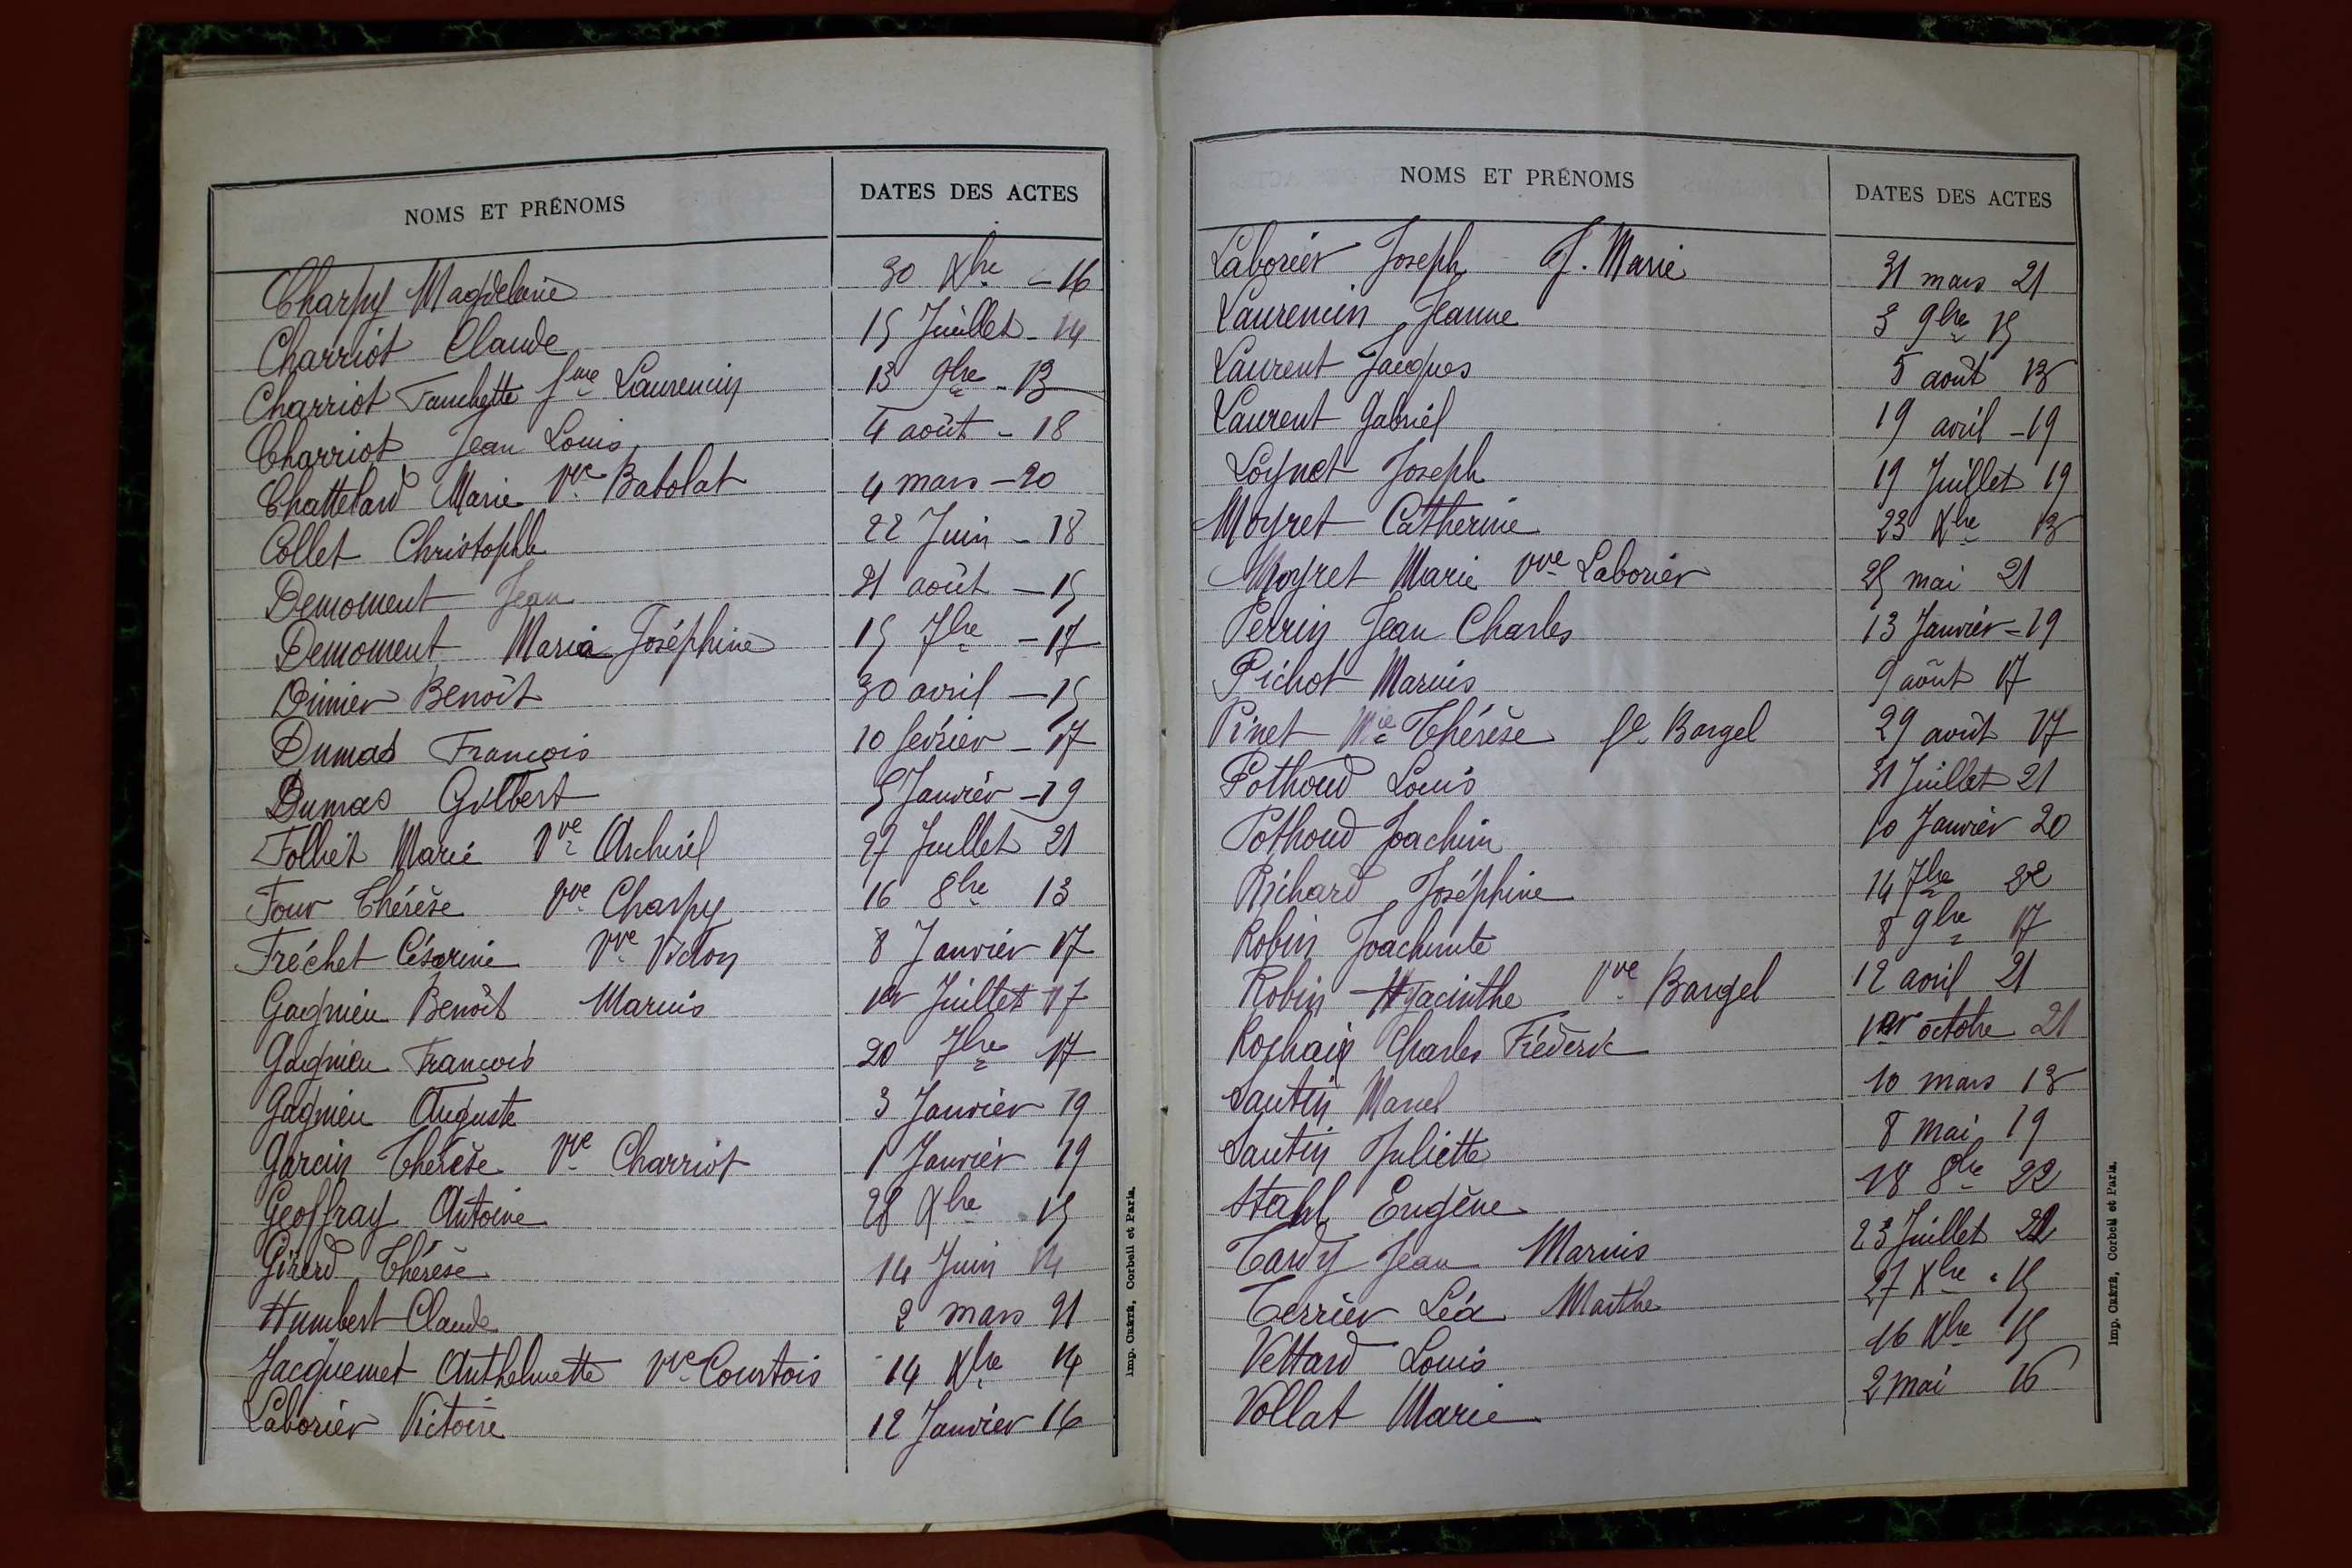 NOMS ET PRÉNOMS DATES DES ACTES
Charpy Magdeleine 30 Xbre - 16
Charriot Claude 15 Juillet - 14
Charriot Fanchette fme Laurencin 13 9bre - 13
Charriot Jean Louis 4 août - 18
Chattelard Marie Vve Babolat 4 mars - 20
Collet Christophe 22 Juin - 18
Demoment Jean 21 août - 15
Demoment Maria Joséphine 15 7bre - 17
Dimier Benoît 30 avril - 15
Dumas François 10 février - 17
Dumas Gilbert 5 Janvier - 19
Folliet Marie Vve 27 Juillet 21
Four Thérèse Vve Charpy 16 8bre 13
Fréchet Césarine Vve Victon 8 Janvier 17
Gagnieu Benoît Marius 1er Juillet 17
Gagnieu François 20 7bre 17
Gagnieu Auguste 3 Janvier 19
Garcin Thérèse Vve Charriot 1 Janvier 19
Geoffray Antoine 28 Xbre 15
Girerd Thérèse 14 Juin 14
Humbert Claude 2 mars 21
Jacquemet Anthelmette Vve Courtois 14 Xbre 14
Laborier Victoire 12 Janvier 16
Imp. CRÉTÉ, Corbeil et Paris.
NOMS ET PRÉNOMS DATES DES ACTES
Laborier Joseph J. Marie 31 mars 21
Laurencin Jeanne 3 9bre 15
Laurent Jacques 5 août 13
Laurent Gabriel 19 avril - 19
Loynet Joseph 19 Juillet 19
Moyret Catherine 23 Xbre 13
Moyret Marie vve Laborier 25 mai 21
Perrin Jean Charles 13 Janvier - 19
Pichot Marius 9 août 17
Pinet Mie Thérèse fe Bargel 29 août 17
Pothoud Louis 31 Juillet 21
Pothoud Joachim 10 Janvier 20
Richard Joséphine 14 7bre 22
Robin Joachinte 8 9bre 17
Robin Hyacinthe Vve Bargel 12 avril 21
Rochaix Charles Fréderic 1er octobre 21
Santin Marcel 10 mars 13
Santin Juliette 8 mai 19
Stahl Eugène 18 8bre 22
Tardy Jean Marius 23 Juillet
Terrier Léa Marthe 27 Xbre 15
Vettard Louis 16 Xbre 15
Vollat Marie 2 mai 16
Imp. CRÉTÉ, Corbeil et Paris.